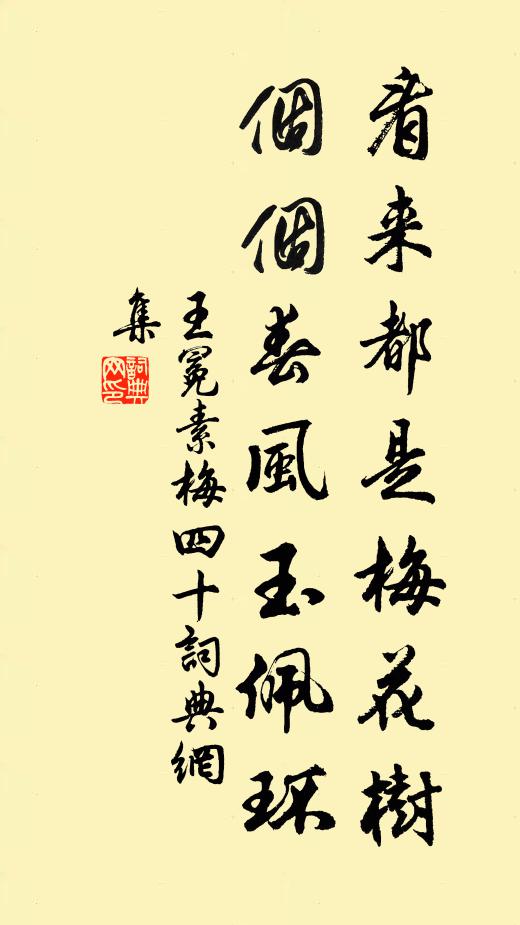 看来都是梅花樹
個個春風玉佩环
王冕素梅四十詞典網
集
詞典
网印